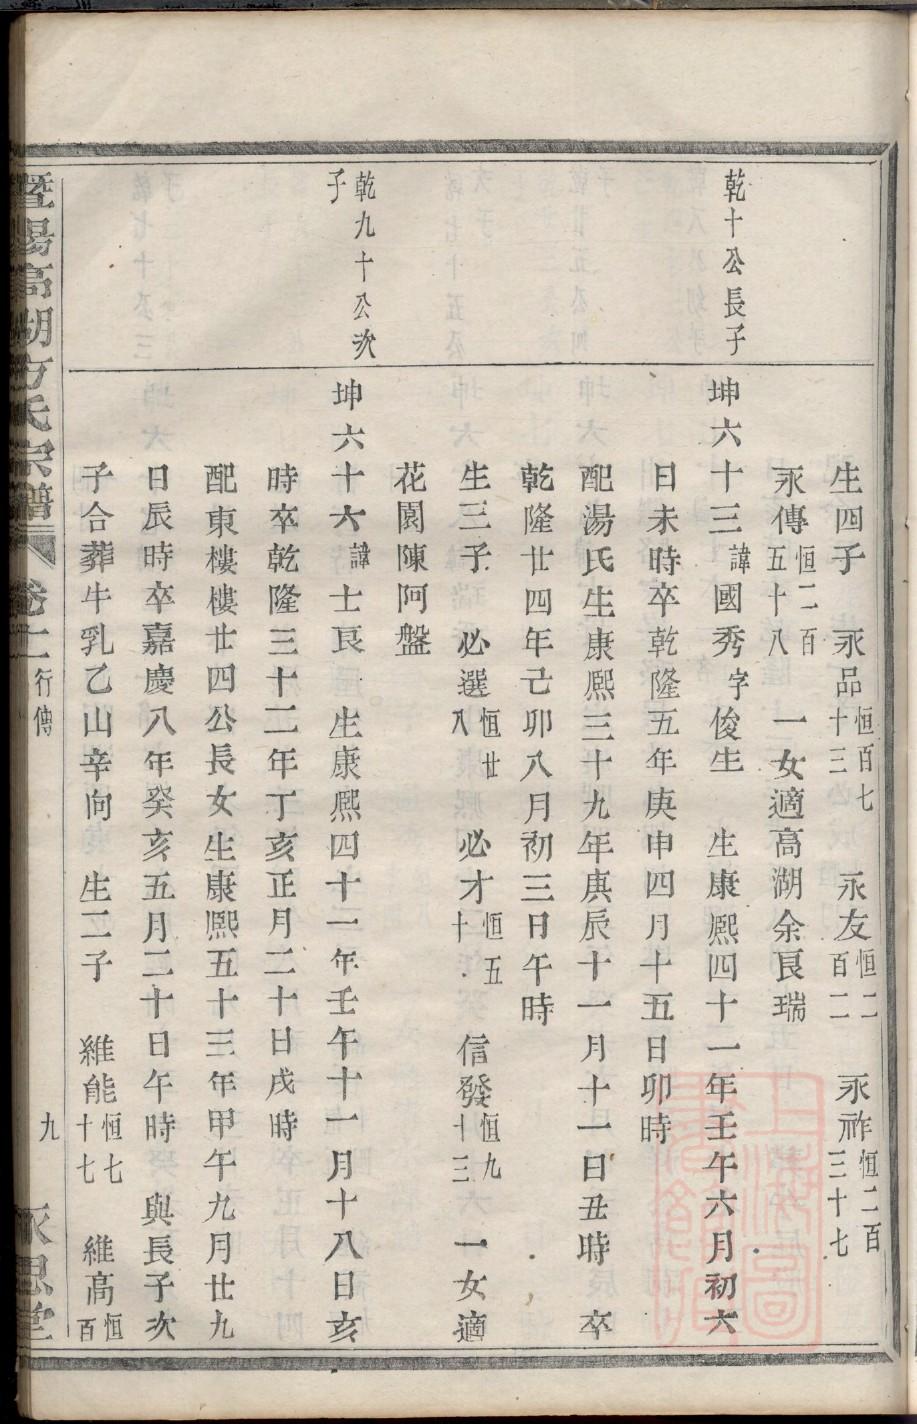 生四子　永品恒百七十三　永友恒二百二　永祚恒二百三十七
永傳恒二百五十八　一女適高湖余良瑞
乾十公長子
坤六十三諱國秀字俊生　生康熙四十一年壬午六月初六
日未時卒乾隆五年庚申四月十五日卯時
配湯氏生康熙三十九年庚辰十一月十一日丑時　卒
乾隆廿四年己卯八月初三日午時
生三子　必選恒廿八　必才恒五十　信發恒九十三　一女適
花園陳阿盤
乾九十公次子
坤六十六諱士良　生康熙四十一年壬午十一月十八日亥
時卒乾隆三十二年丁亥正月二十日戌時
配東樓樓廿四公長女生康熙五十三年甲午九月廿九
日辰時卒嘉慶八年癸亥五月二十日午時　與長子次
子合葬牛乳乙山辛向　生二子　維能恒七十七　維高恒百
暨陽高湖方氏宗譜　卷　行傳　九　永思堂